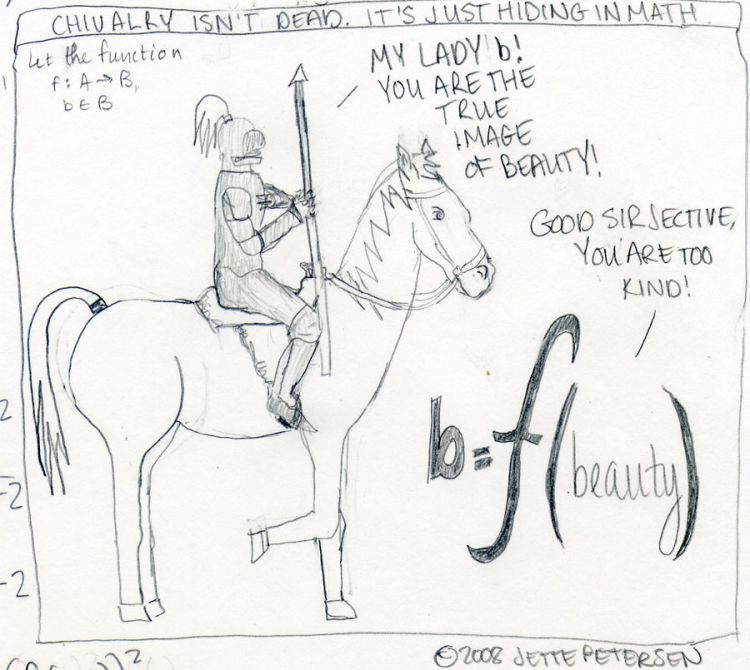 CHIVALRY ISN'T DEAD. IT'S JUST HIDING IN MATH.
Let the function
f: A → B,
b ∈ B
MY LADY b!
YOU ARE THE
TRUE
IMAGE
OF BEAUTY!
GOOD SIR JECTIVE,
YOU ARE TOO
KIND!
b = f(beauty)
2
-2
-2
2
©2008 JETTE PETERSEN